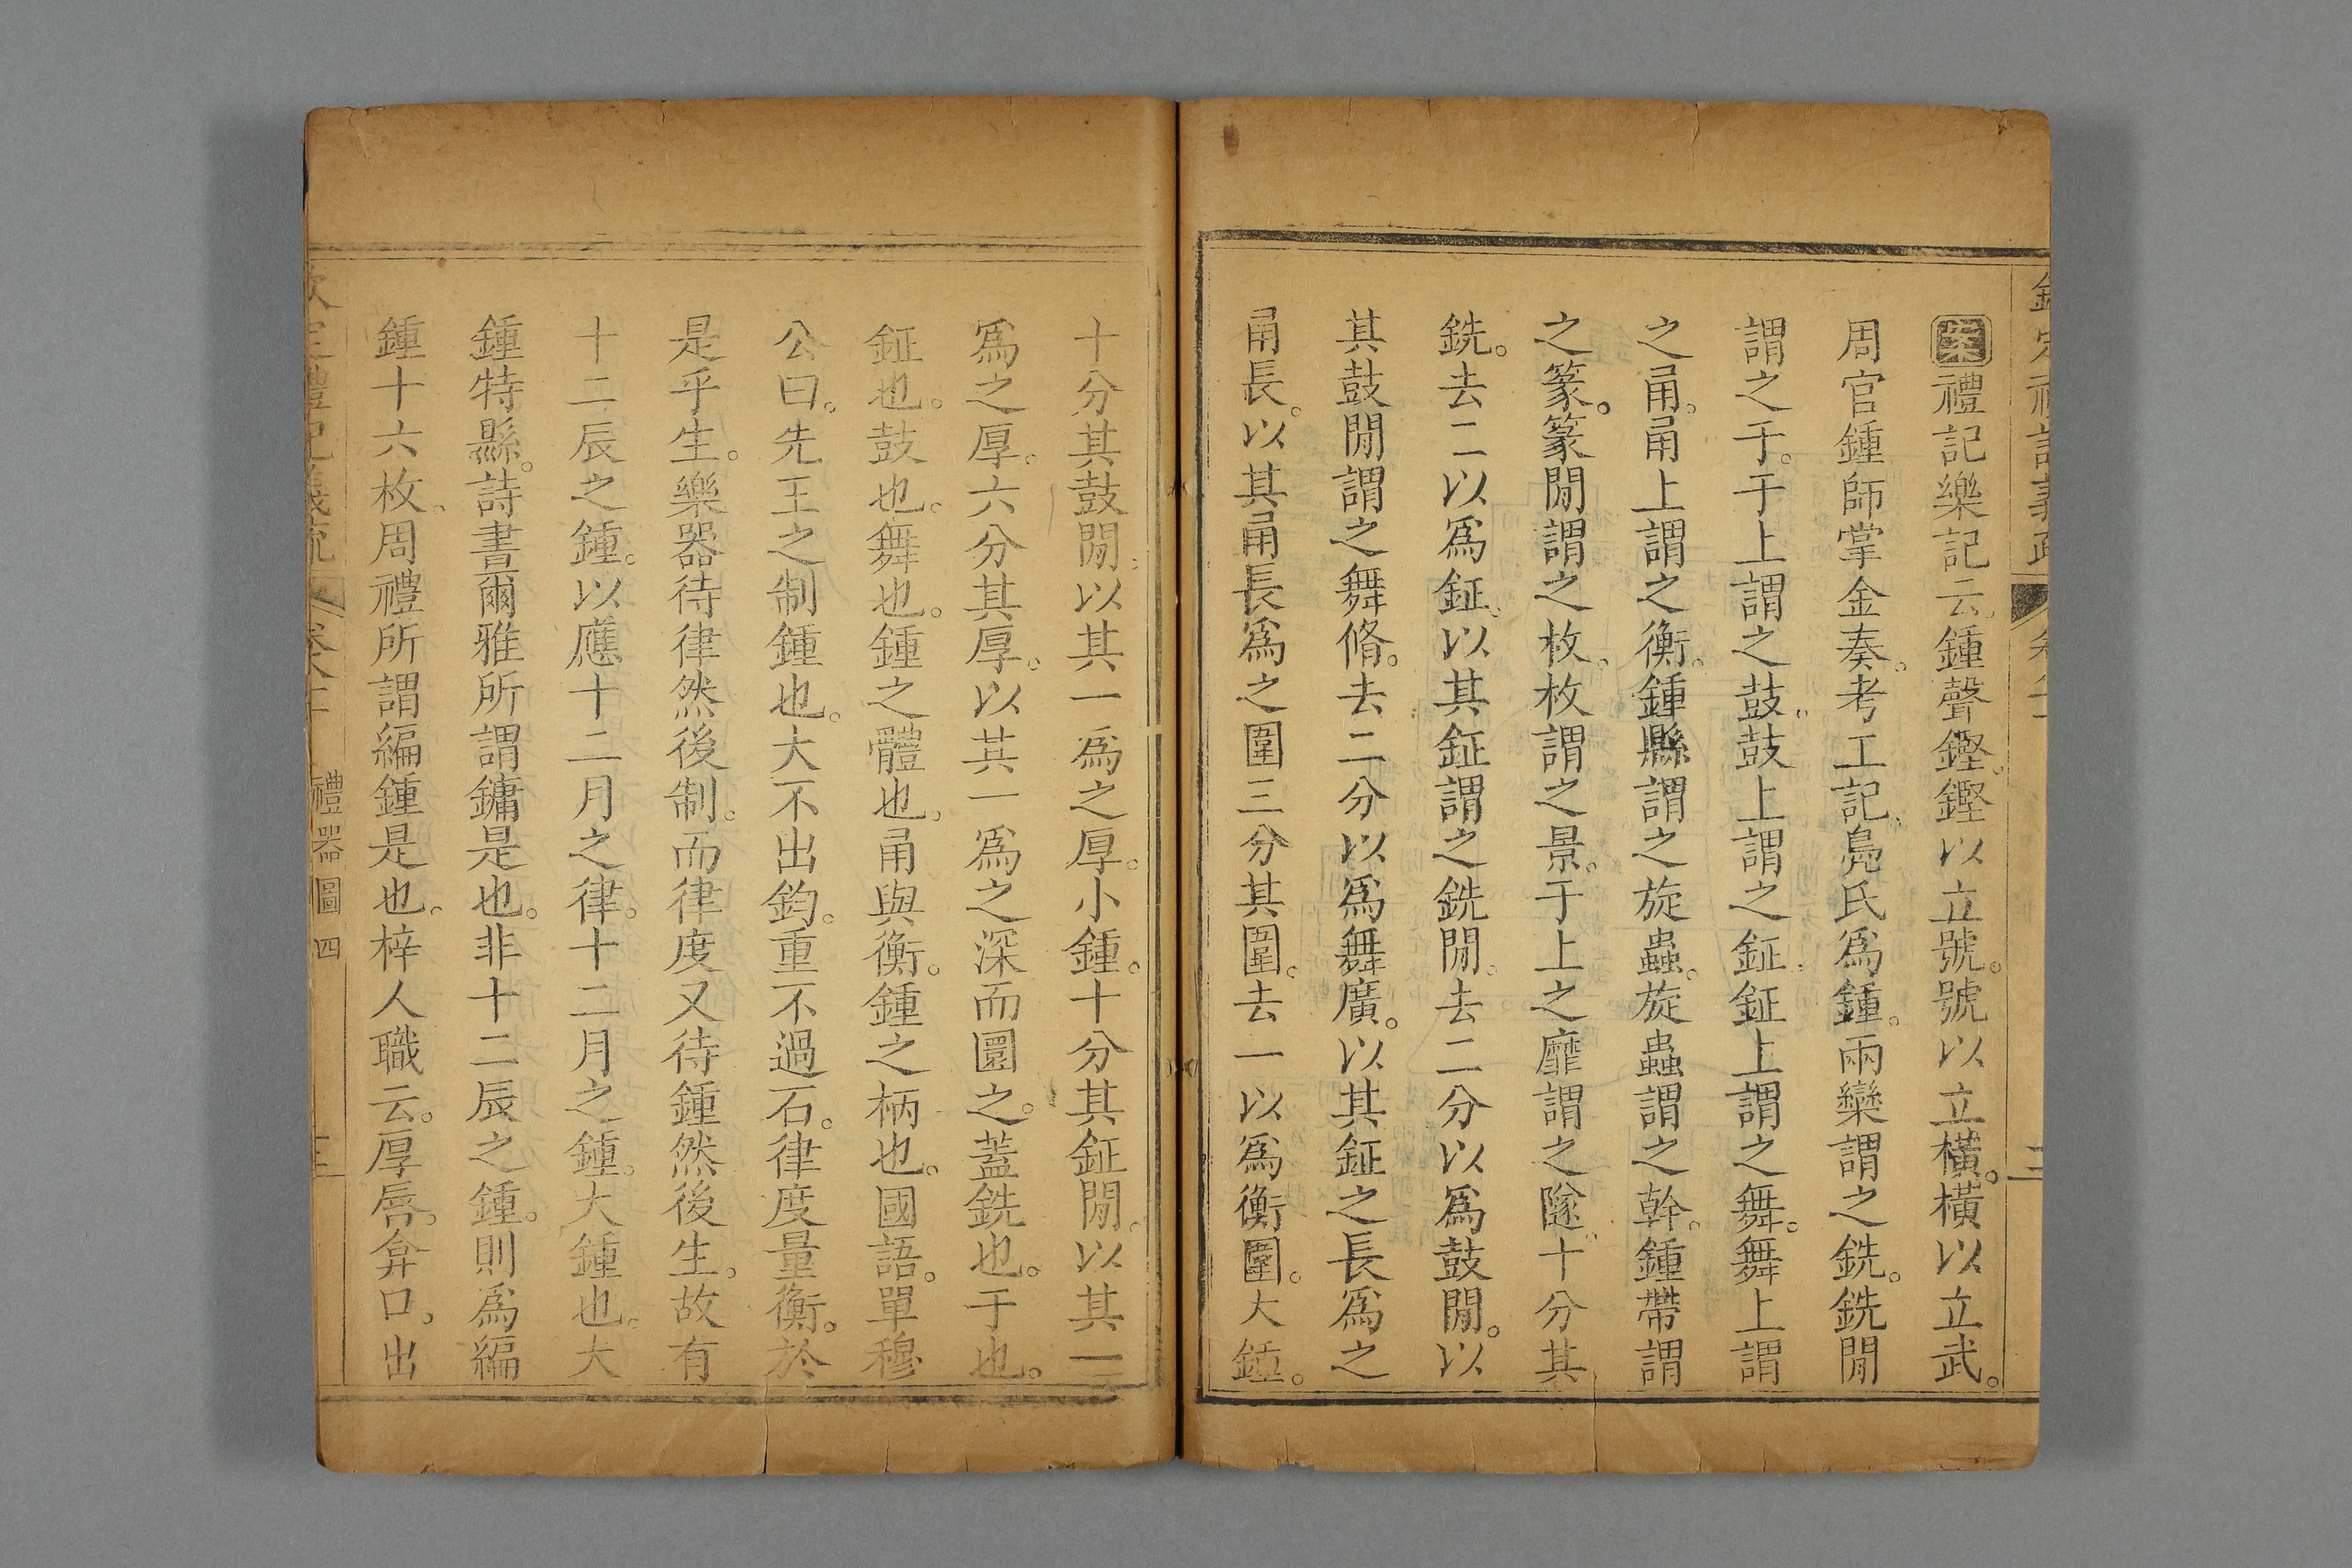 案禮記樂記云鍾聲鏗。鏗以立號。號以立橫。橫以立武。
周官鍾師掌金奏。考工記。鳧氏爲鍾。兩欒謂之銑。銑閒
謂之于。于上謂之鼓。鼓上謂之鉦。鉦上謂之舞。舞上謂
之甬。甬上謂之衡。鍾縣謂之旋蟲。旋蟲謂之幹。鍾帶謂
之篆。篆閒謂之枚。枚謂之景。于上之㸏謂之隧。十分其
銑。去二以爲鉦。以其鉦謂之銑閒。去二分以爲鼓閒。以
其鼓閒謂之舞脩。去二分以爲舞廣。以其鉦之長爲之
甬長。以其甬長爲之圍三分其圍。去一以爲衡圍。大鍾。
十分其鼓閒。以其一爲之厚。小鍾。十分其鉦閒。以其一
爲之厚。六分其厚。以其一爲之深而圜之。蓋銑也。于也。
鉦也。鼓也。舞也。鍾之體也。甬與衡。鍾之柄也。國語。單穆
公曰。先王之制鍾也。大不出鈞。重不過石。律度量衡。於
是乎生。樂器待律然後制。而律度又待鍾然後生。故有
十二辰之鍾。以應十二月之律。十二月之鍾。大鍾也。大
鍾特縣。詩書爾雅所謂鏞是也。非十二辰之鍾。則爲編
鍾十六枚。周禮所謂編鍾是也。梓人職云。厚唇。弇口。出
欽定禮記義疏 卷八十二 禮器圖四